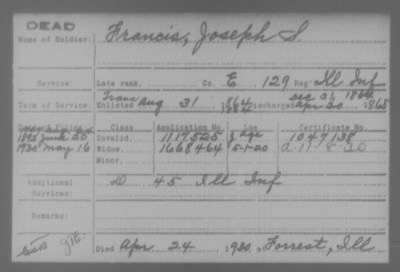 DEAD
Name of Soldier: Francis, Joseph S.
Service: Late rank, Co. E, 129 Reg't Ill Inf
Trans Dec 31, 1864
Term of Service: Enlisted Aug 31, 1864 Discharged Apr 20, 1865
Date of Filing. Class Application No. Law Certificate No.
1892 June 20 Invalid. 1117525 J age 1047138
1920 May 16 Widow. 1668464 5-1-20 d. 11-8-20
Minor.
Additional Services: D 45 Ill Inf
Remarks:
Died Apr 24, 1920, Forrest, Ill